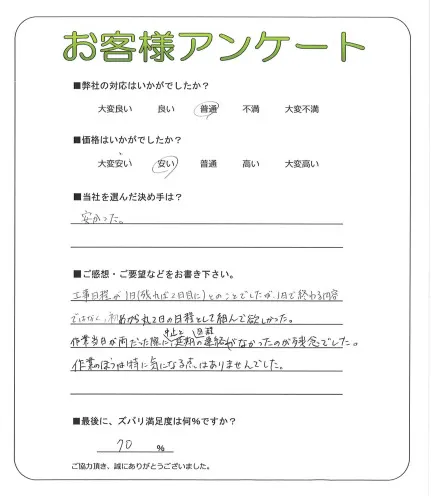 お客様アンケート
■弊社の対応はいかがでしたか？
大変良い 良い 普通 不満 大変不満
■価格はいかがでしたか？
大変安い 安い 普通 高い 大変高い
■当社を選んだ決め手は？
安かった。
■ご感想・ご要望などをお書き下さい。
工事日程が1日(残れば2日目に)とのことでしたが、1日で終わる内容
ではなく、初めから丸2日の日程として組んで欲しかった。
中止と
作業当日が雨だった際に、延期の連絡がなかったのが残念でした。
作業のほうは特に気になる点はありませんでした。
■最後に、ズバリ満足度は何%ですか？
70 %
ご協力頂き、誠にありがとうございました。